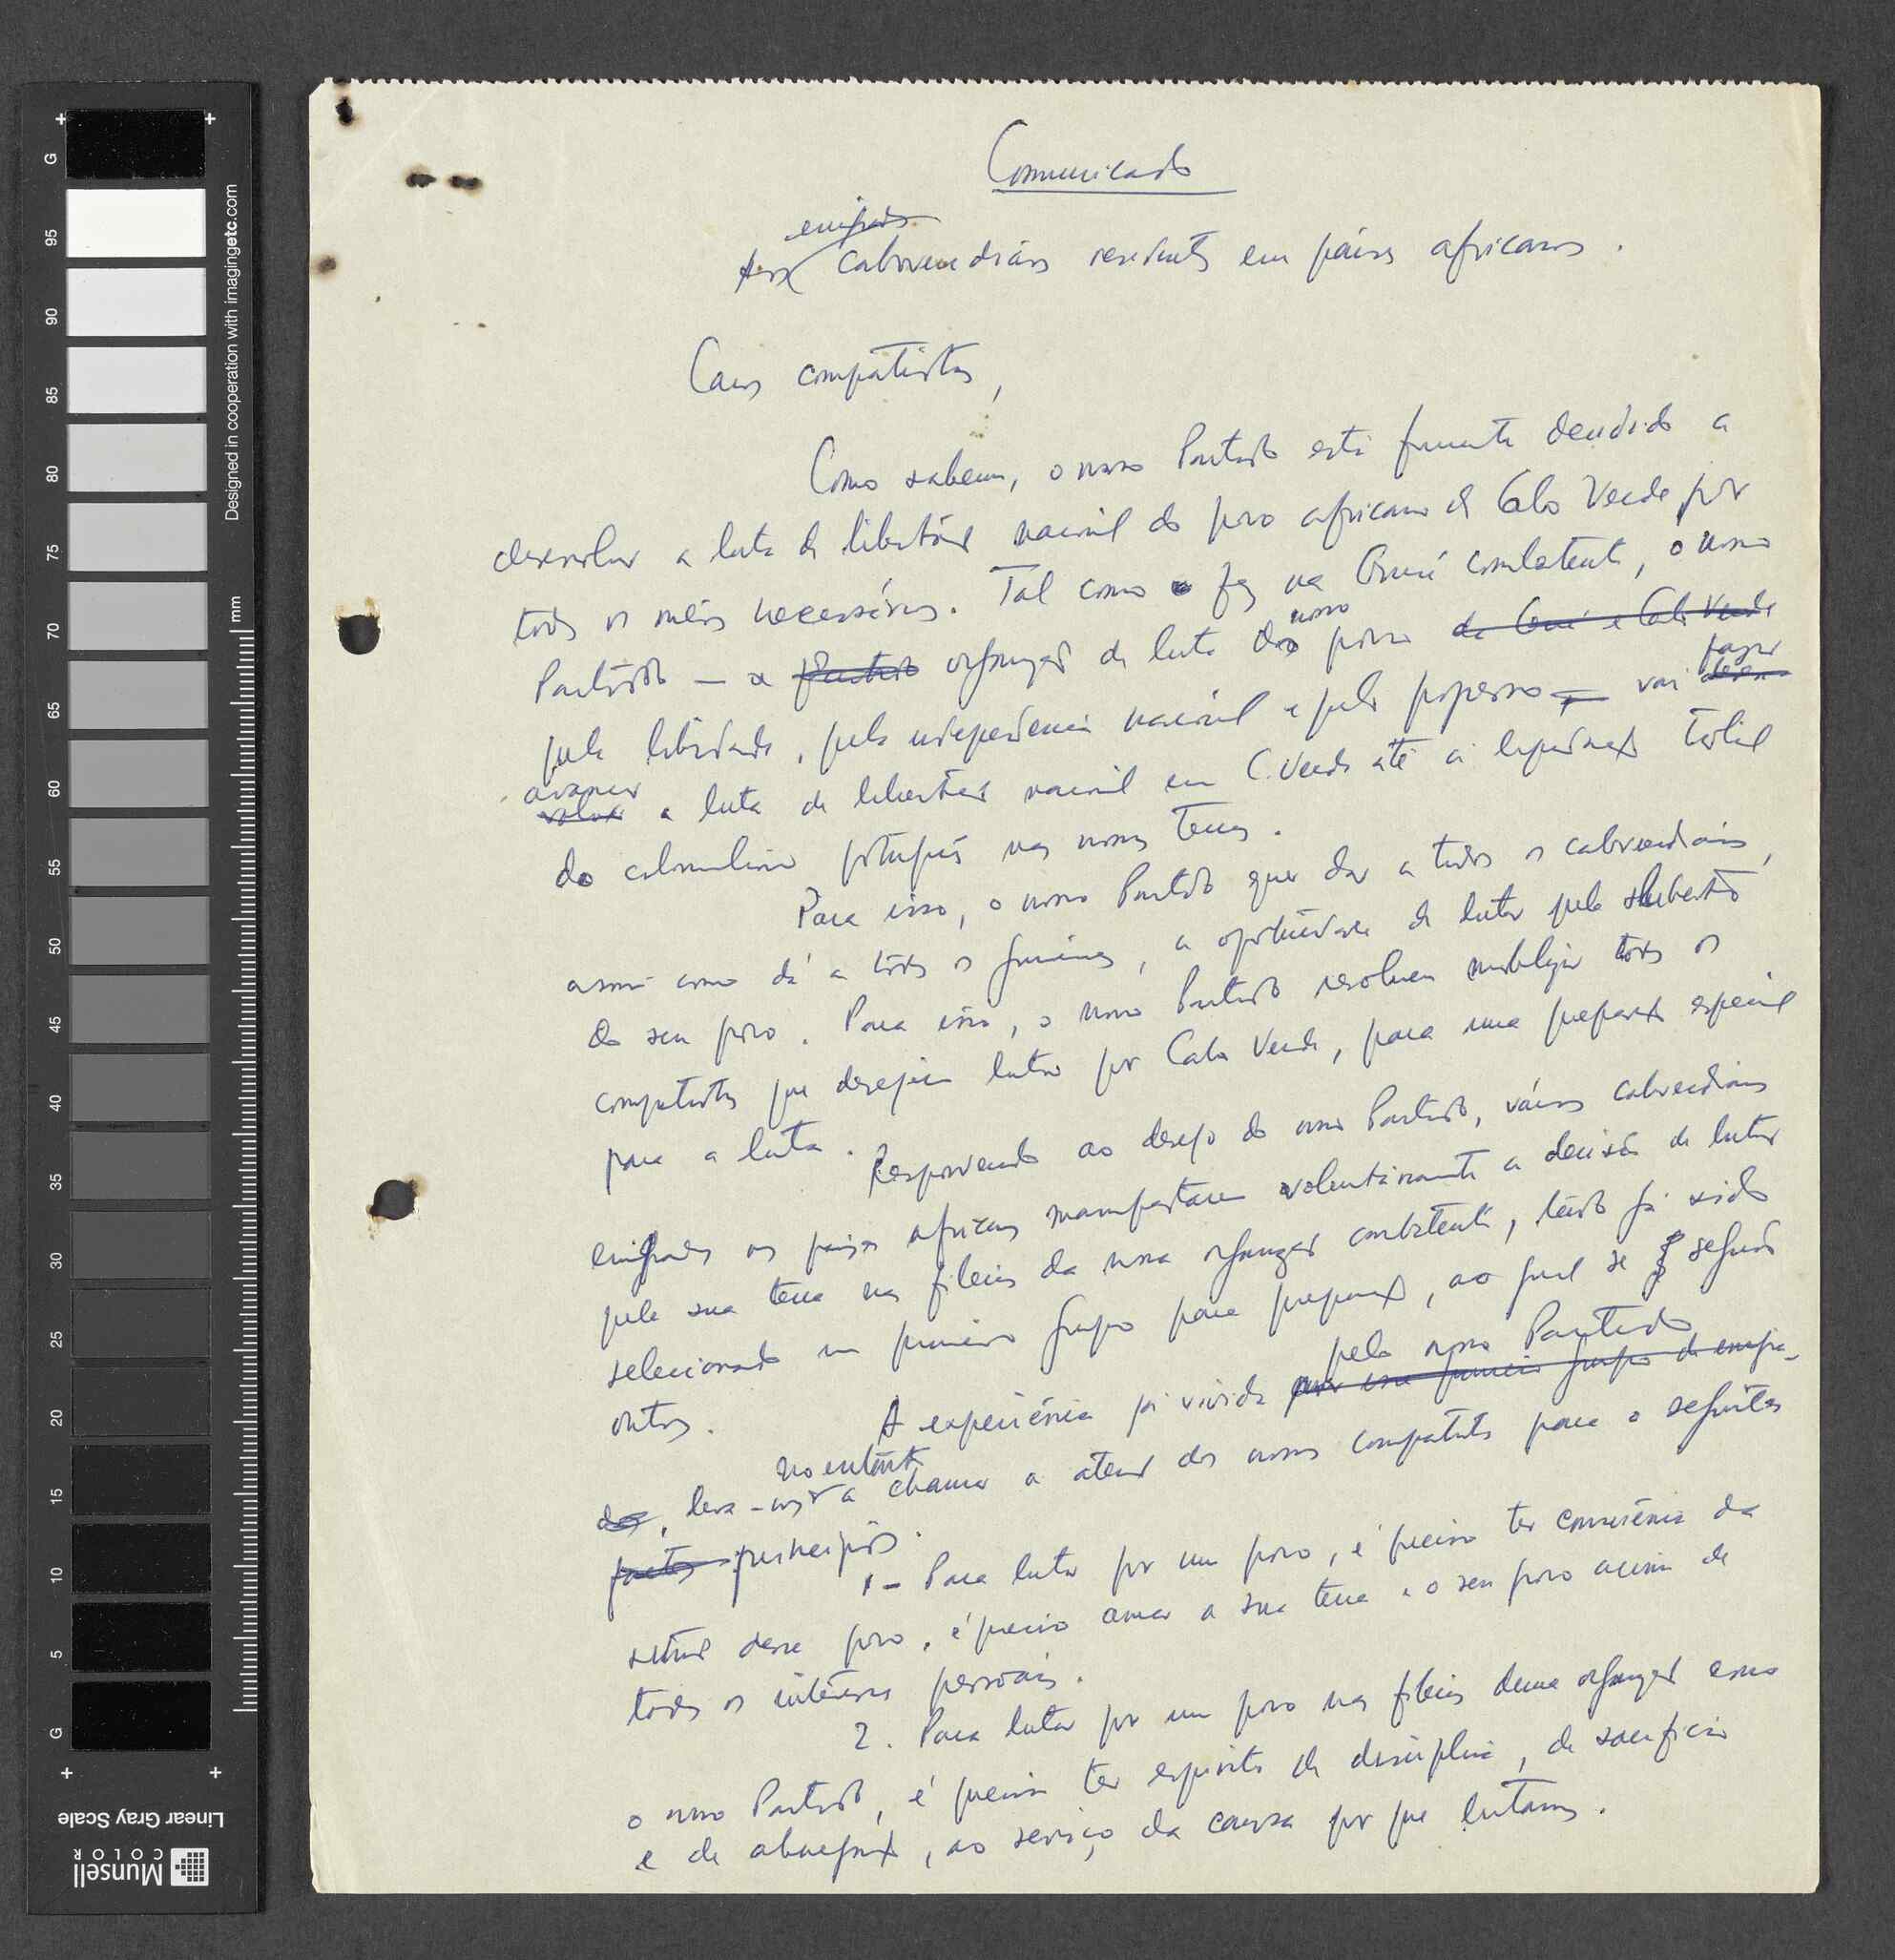 Comunicado
emigrados
Aos caboverdianos residentes em países africanos.
Caros compatriotas,
Como sabem, o nosso Partido está firmemente decidido a
desenvolver a luta de libertação nacional do povo africano de Cabo Verde por
todos os meios necessários. Tal como o fez na Guiné combatente, o nosso
nosso
Partido — o Partido organização de luta do povo da Guiné e Cabo Verde
fazer
pela liberdade, pela independência nacional e pelo progresso — vai desen-
avançar
volver a luta de libertação nacional em C. Verde até à liquidação total
do colonialismo português nas nossas terras.
Para isso, o nosso Partido quer dar a todos os caboverdianos,
assim como dá a todos os guineenses, a oportunidade de lutar pela libertação
do seu povo. Para isso, o nosso Partido resolveu mobilizar todos os
compatriotas que desejem lutar por Cabo Verde, para uma preparação especial
para a luta.
Respondendo ao desejo do nosso Partido, vários caboverdianos
emigrados nos países africanos manifestaram voluntàriamente a decisão de lutar
pela sua terra nas fileiras da nossa organização combatente, tendo já sido
seleccionado um primeiro grupo para preparação, ao qual se seguirão
outros.
pelo nosso Partido
A experiência já vivida por esse primeiro grupo de emigra-
no entanto
dos, leva-nos a chamar a atenção dos nossos compatriotas para os seguintes
factos princípios.
1 - Para lutar por um povo, é preciso ter consciência da
situação desse povo, é preciso amar a sua terra e o seu povo acima de
todos os interesses pessoais.
2. Para lutar por um povo nas fileiras duma organização como
o nosso Partido, é preciso ter espírito de disciplina, de sacrifício
e de abnegação, ao serviço da causa por que lutamos.
Designed in cooperation with imagingetc.com
mm
G
95
90
85
80
75
70
65
60
55
50
45
40
35
30
25
20
15
10
5
G
Linear Gray Scale
Munsell
COLOR